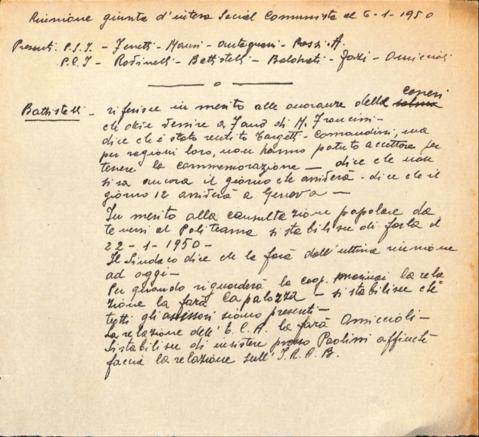 Riunione giunta d'intesa Social Comunista del 6-1-1950
Presenti P.S.I - Zenetti - Mausi - Antognoni - Rossi A.
P.C.I - Rodinelli - Battistelli - Baldrati - Fazi - Amiccioli
o
Battistelli - riferisce in merito alle onoranze della ceneri
che deve venire a Fano di M. Francini -
dice che è stato sentito Targetti - Comandini, ma
per ragioni loro, non hanno potuto accettare per
tenere la commemorazione - dice che non
si sa ancora il giorno che arriverà - dice che il
giorno 12 arriverà a Genova -
In merito alla consultazione popolare da
tenersi al Politeama si stabilisce di farla il
22-1-1950 -
Il Sindaco dice che la farà dall'ultima riunione
ad oggi -
Per quando riguarderà la coop. la rela
zione la farà Capalozza - si stabilisce che
tutti gli assessori siano presenti -
La relazione dell'E.C.A. la farà Amiccioli -
Si stabilisce di insistere presso Paolini affinché
faccia la relazione sull'I.R.A.B.